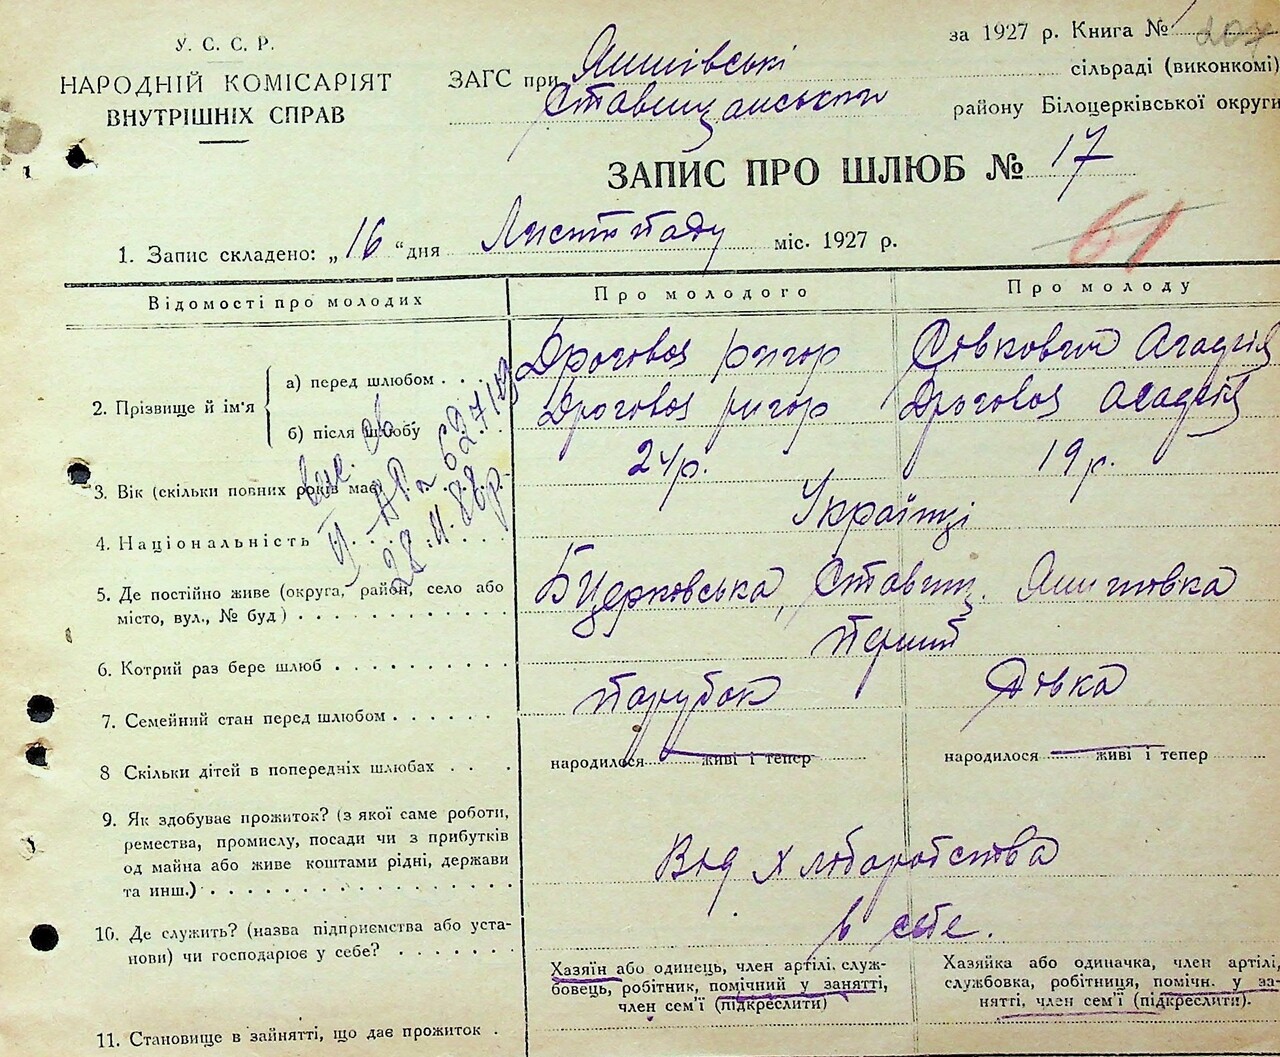 У. С. С. Р.
НАРОДНІЙ КОМІСАРІЯТ
ВНУТРІШНІХ СПРАВ
за 1927 р. Книга №
207
ЗАГС при Яшнівські сільраді (виконкомі)
Ставищанського району Білоцерківської округи
ЗАПИС ПРО ШЛЮБ № 17
61
1. Запис складено: „16“ дня Листопаду міс. 1927 р.
Відомості про молодих
Про молодого
Про молоду
2. Прізвище й ім'я
а) перед шлюбом . . .
Дроговоз Ригор
Сівкович
б) після шлюбу
Дроговоз Ригор
Дроговоз
3. Вік (скільки повних років має)
24 р.
19 р.
4. Національність . . . . . . .
Українці
28.11.88 р.
5. Де постійно живе (округа, район, село або
місто, вул., № буд) . . . . . . . . . .
Б Церковська, Ставищ. Яшнівка
6. Котрий раз бере шлюб . . . . . . . . .
перший
7. Семейний стан перед шлюбом . . . . . .
парубок
Дівка
8 Скільки дітей в попередніх шлюбах . . .
народилося живі і тепер
народилося живі і тепер
9. Як здобуває прожиток? (з якої саме роботи,
ремества, промислу, посади чи з прибутків
од майна або живе коштами рідні, держави
та инш.) . . . . . . . . . . . . . . .
Від хліборобства
10. Де служить? (назва підприємства або уста-
нови) чи господарює у себе? . . . . . . .
в себе.
11. Становище в зайнятті, що дає прожиток .
Хазяїн або одинець, член артілі, служ-
бовець, робітник, помічний у занятті,
член сем'ї (підкреслити)
Хазяйка або одиначка, член артілі,
службовка, робітниця, помічн. у за-
нятті, член сем'ї (підкреслити).